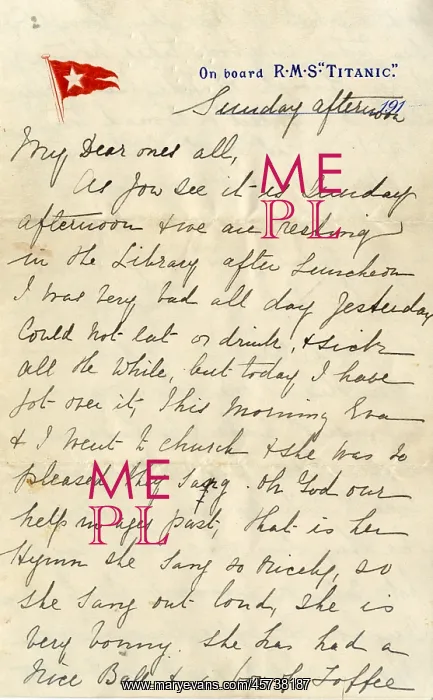 On board R·M·S·"TITANIC."
191
Sunday afternoon
My Dear ones all,
As you see it is Sunday
afternoon & we are resting
in the Library after Luncheon
I was very bad all day Yesterday
Could not eat or drink, & sick
all the while, but today I have
got over it, This Morning Eva
& I went to church & she was so
pleased they sang. Oh God our
help in ages past, that is her
Hymn she sang so nicely, so
she sang out loud, she is
very bonny. She has had a
nice Ball & a Toffee
ME
PL
ME
PL
www.maryevans.com/45738187